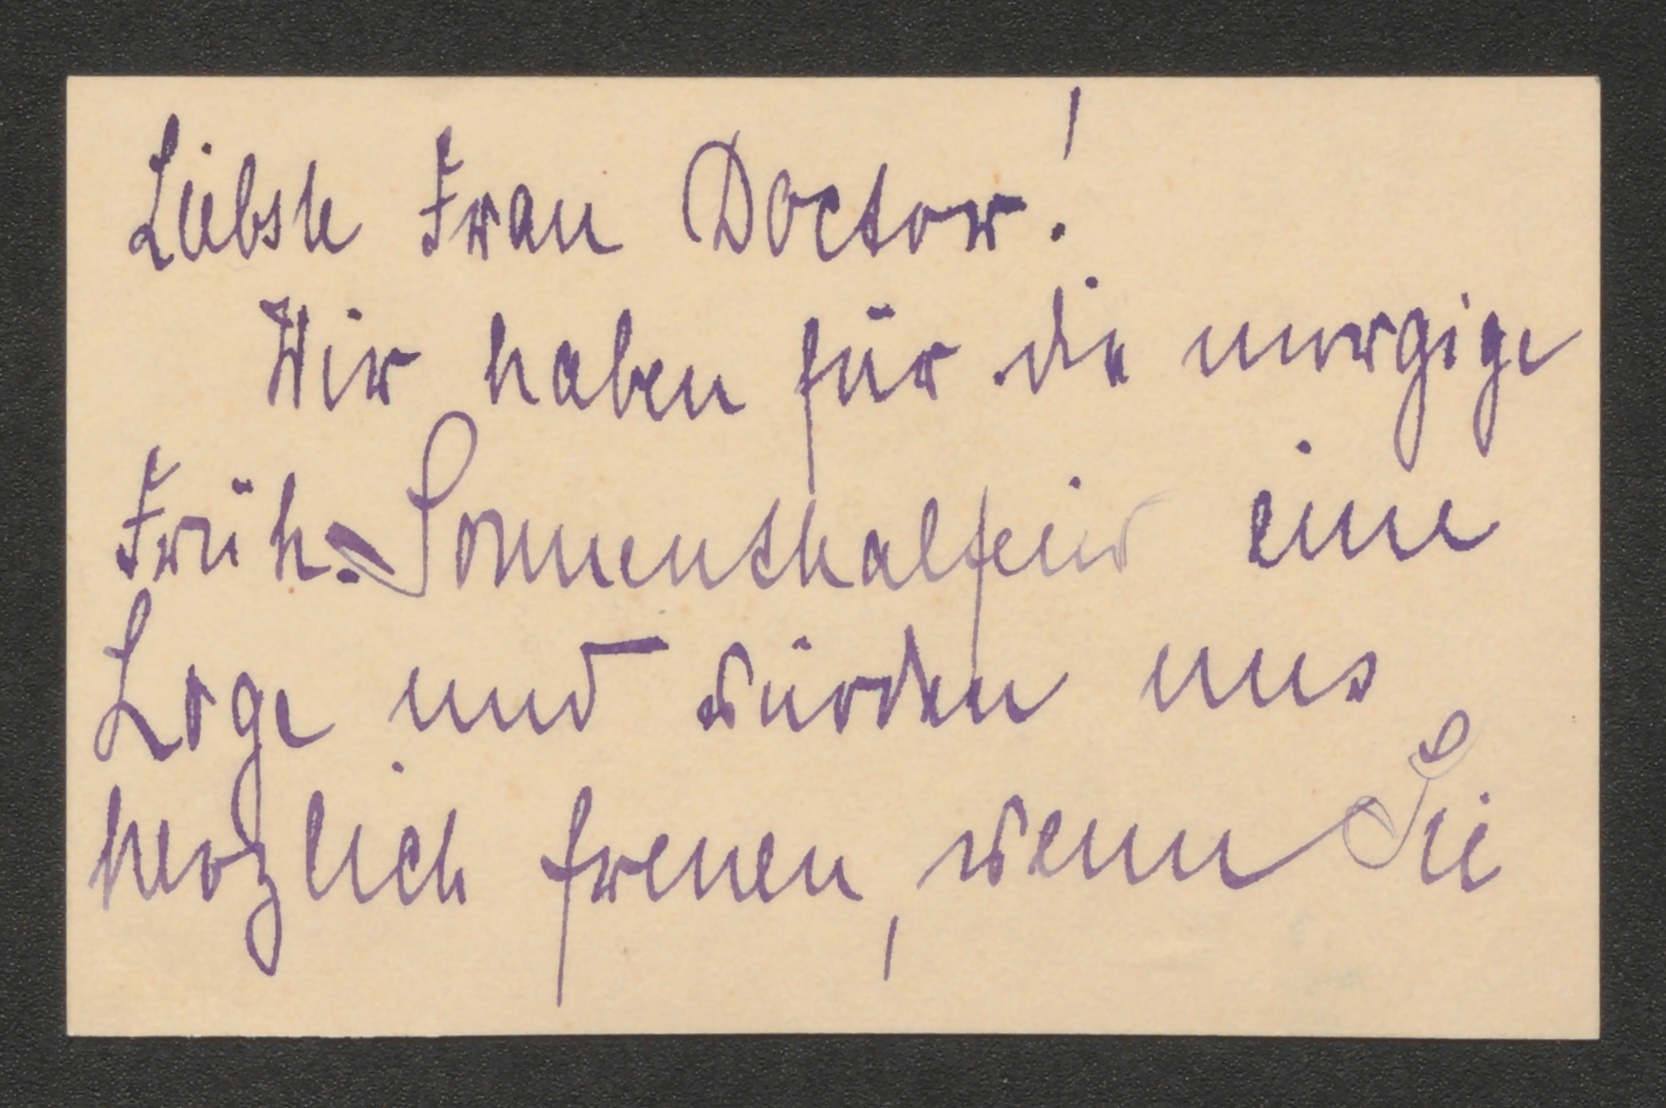 Liebste Frau Doctor!
Wir haben für die morgige
Früh-Sonnenthalfeier eine
Loge und würden uns
herzlich freuen, wenn Sie